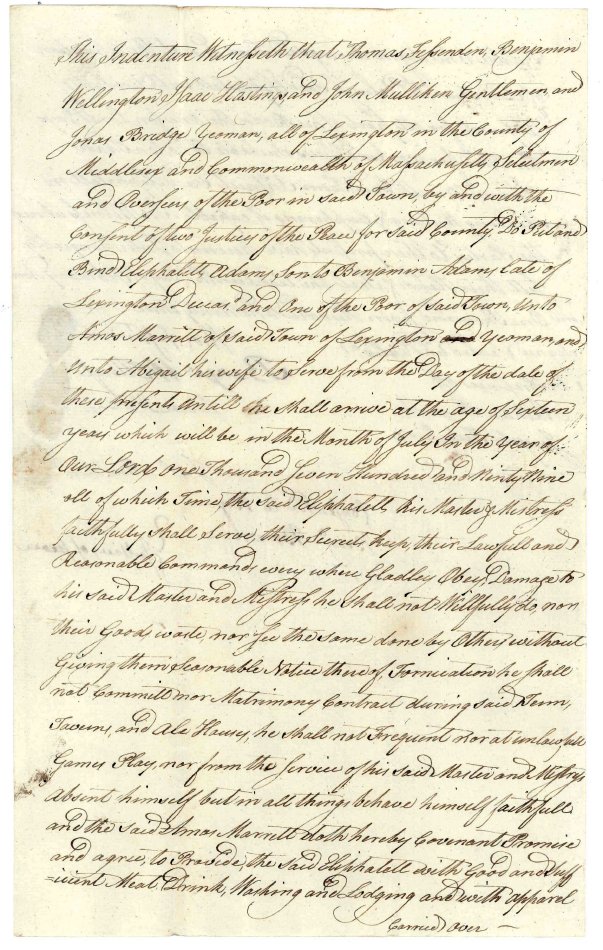 This Indenture Witnesseth that, Thomas Fessenden, Benjamin
Wellington, Isaac Hastings, and John Mulliken Gentlemen, and
Jonas Bridge Yeoman, all of Lexington in the County of
Middlesex and Commonwealth of Massachusetts Selectmen
and Overseers of the Poor in said Town, by and with the
Consent of two Justices of the Peace for said County Do Put and
Bind Eliphalet Adams, son to Benjamin Adams late of
Lexington Deceasd. and One of the Poor of said Town, Unto
Amos Marrett of said Town of Lexington and Yeoman, and
Unto Abigail his wife to Serve from the Day of the date of
these presents Untill he shall arrive at the age of Sixteen
years which will be in the Month of July In the Year of
Our Lord one Thousand Seven Hundred and Ninty Nine
all of which Time, the said Eliphalett his Master & Mistress
faithfully shall Serve, their Secrets, Keep, their Lawfull and
Reasonable Commands, every where Gladley Obey, Damage to
his said Master and Mistress he shall not Willfully do, nor
their Goods waste, nor see the same done by Others, without
Giving them Seasonable Notice there of Fornication he shall
not Committ nor Matrimony Contract during said Term,
Taverns, and Ale Houses, he shall not Frequent nor at unlawfull
Games Play, nor from the Service of his said Master and Mistress
absent himself but in all things behave himself faithfull
and the said Amos Marrett doth hereby Covenant Promise
and agree, to Provide, the said Eliphalett with Good and Suff
=icient Meat Drink, Washing and Lodging and with apparel
Carried Over —